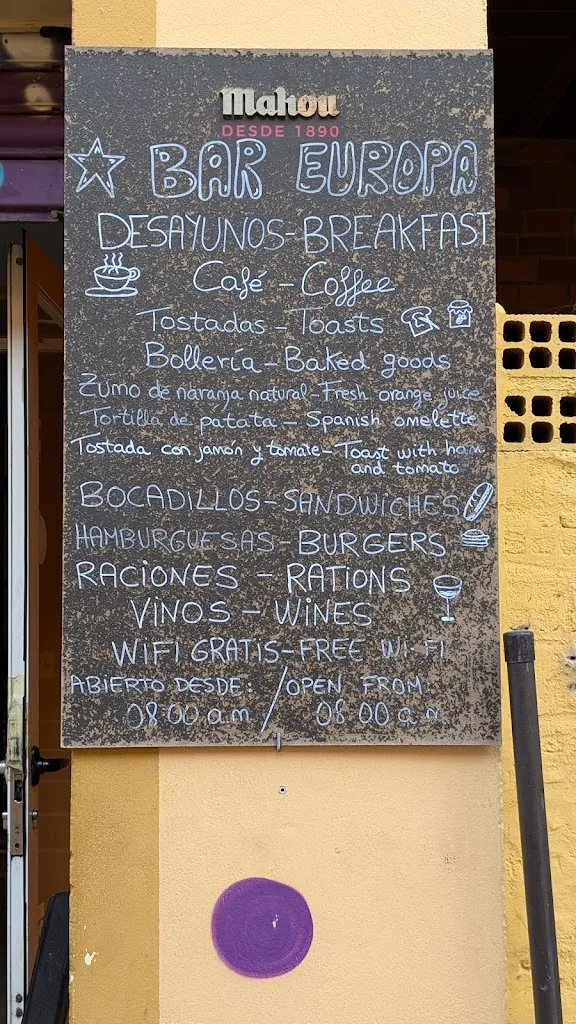 Mahou
DESDE 1890
BAR EUROPA
DESAYUNOS-BREAKFAST
Café - Coffee
Tostadas - Toasts
Bollería - Baked goods
Zumo de naranja natural - Fresh orange juice
Tortilla de patata - Spanish omelette
Tostada con jamón y tomate - Toast with ham
and tomato
BOCADILLOS - SANDWICHES
HAMBURGUESAS - BURGERS
RACIONES - RATIONS
VINOS - WINES
WIFI GRATIS - FREE WI-FI
ABIERTO DESDE: / OPEN FROM
08:00 a.m / 08:00 a.m